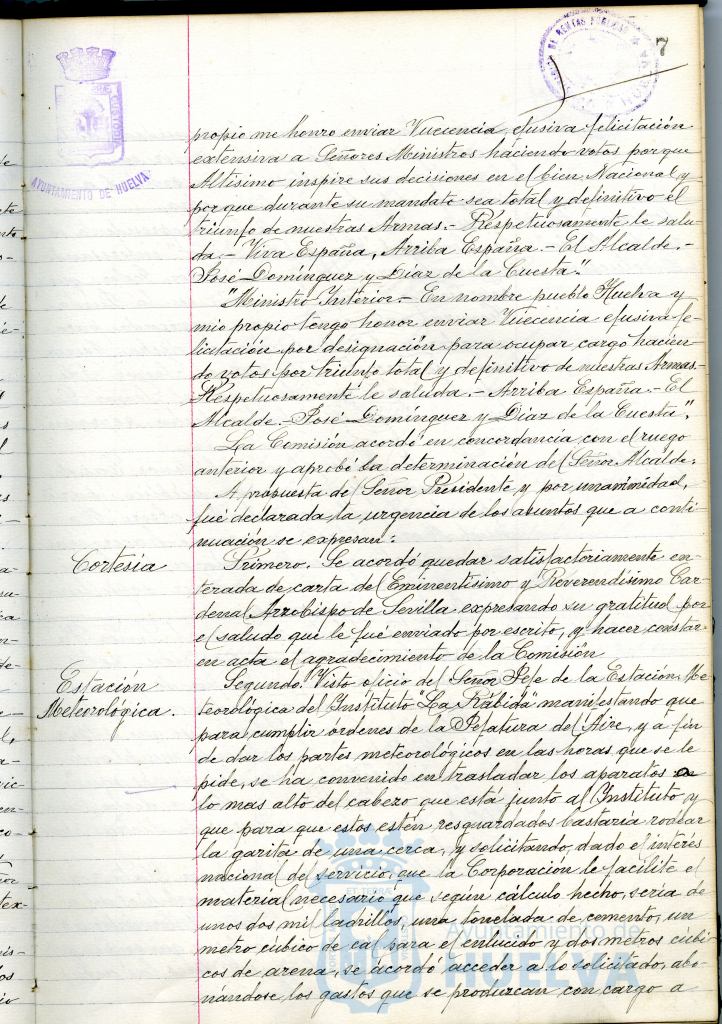 7
AYUNTAMIENTO DE HUELVA
propio me honro enviar Vuecencia, efusiva felicitación
extensiva a Señores Ministros haciendo votos por que
Altisimo inspire sus decisiones en el bien Nacional y
por que durante su mandato sea total y definitivo el
triunfo de nuestras Armas.- Respetuosamente le salu-
da.- Viva España, Arriba España.- El Alcalde.-
José Domínguez y Díaz de la Cuesta".
"Ministro Interior.- En nombre pueblo Huelva y
mio propio tengo honor enviar Vuecencia efusiva fe-
licitación por designación para ocupar cargo hacien-
do votos por triunfo total y definitivo de nuestras Armas.-
Respetuosamente le saluda.- Arriba España.- El
Alcalde.- José Domínguez y Díaz de la Cuesta".
La Comisión acordó en concordancia con el ruego
anterior y aprobó la determinación del Señor Alcalde.
A propuesta del Señor Presidente y por unanimidad,
fué declarada la urgencia de los asuntos que a conti-
nuación se expresan:
Cortesia
Primero. Se acordó quedar satisfactoriamente en-
terada de carta del Eminentisimo y Reverendisimo Car-
denal Arzobispo de Sevilla expresando su gratitud por
el saludo que le fué enviado por escrito, y hacer constar
en acta el agradecimiento de la Comisión
Estación
Meteorológica.
Segundo. Visto oficio del Señor Jefe de la Estación Me-
teorológica del Instituto "La Rábida" manifestando que
para cumplir ordenes de la Jefatura del Aire, y a fin
de dar los partes meteorológicos en las horas que se le
pide, se ha convenido en trasladar los aparatos a
lo mas alto del cabezo que está junto al Instituto y
que para que estos estén resguardados bastaría rodear
la garita de una cerca, y solicitando, dado el interés
nacional del servicio, que la Corporación le facilite el
material necesario que según cálculo hecho, seria de
unos dos mil ladrillos, una tonelada de cemento, un
metro cúbico de cal para el enlucido y dos metros cúbi-
cos de arena, se acordó acceder a lo solicitado, abo-
nándose los gastos que se produzcan con cargo a
Ayuntamiento de
HUELVA